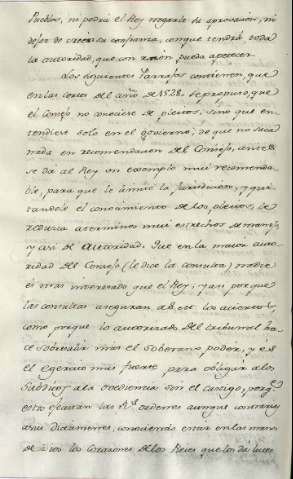 Pueblos, ni podrá el Rey negarle su aprovacion, ni
dejar de crecer su confianza, con que tendrá toda
la autoridad, que con razón pueda apetecer.
Los siguientes Parrafos contienen, que
en las cortes del año de 1528. se propuso, que
el Consejo no conociese de pleitos, sino que en
tendiese solo en el govierno, de que no saca
nada en recomendacion del Consejo, antes
se da al Rey un exemplo mui recomenda
ble, para que le limite la Jurisdiccion, y qui
tandole el conocimiento de los pleitos, le
reduzca a terminos mui estrechos de manejo,
y casi de Autoridad. Que en la maior auto
ridad del Consejo (le dice la consulta) nadie
es mas interesado que el Rey; y asi porque
las consultas aseguran a los aciertos,
como porque lo autorizado del tribunal ha
ce sobresalir mas el Soberano poder, y es
el Egercito mas fuerte para obligar a los
Subditos a la obediencia con el castigo, porq.e
estos egecutan las R.s ordenes aunque contrarias
a sus dictamenes, conociendo estar en las manos
de Dios los Corazones de los Reies que los da luces